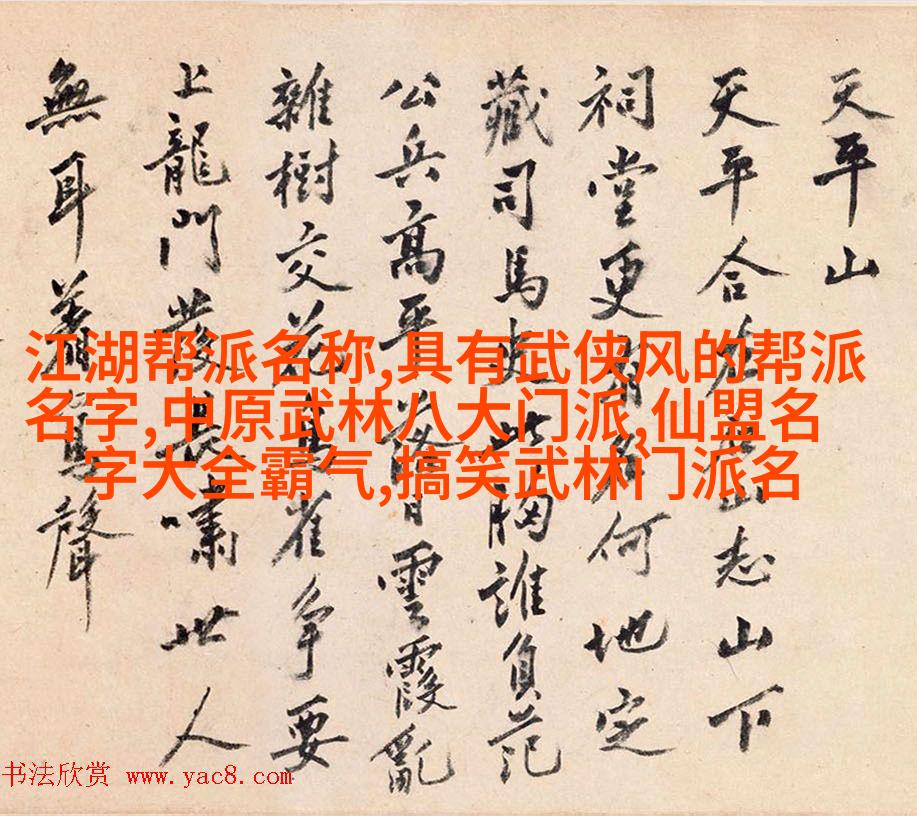 天平山
天平合山志山下
祠堂更有何地定
藏司馬史此胸誰負范
公兵高平落日雲霞亂
雜樹交花鳥雀爭要
上龍門發長嘯世人
無耳聲
江湖帮派名称,具有武侠风的帮派
名字,中原武林八大门派,仙盟名
字大全霸气,搞笑武林门派名
书法欣赏 www.yac8.com